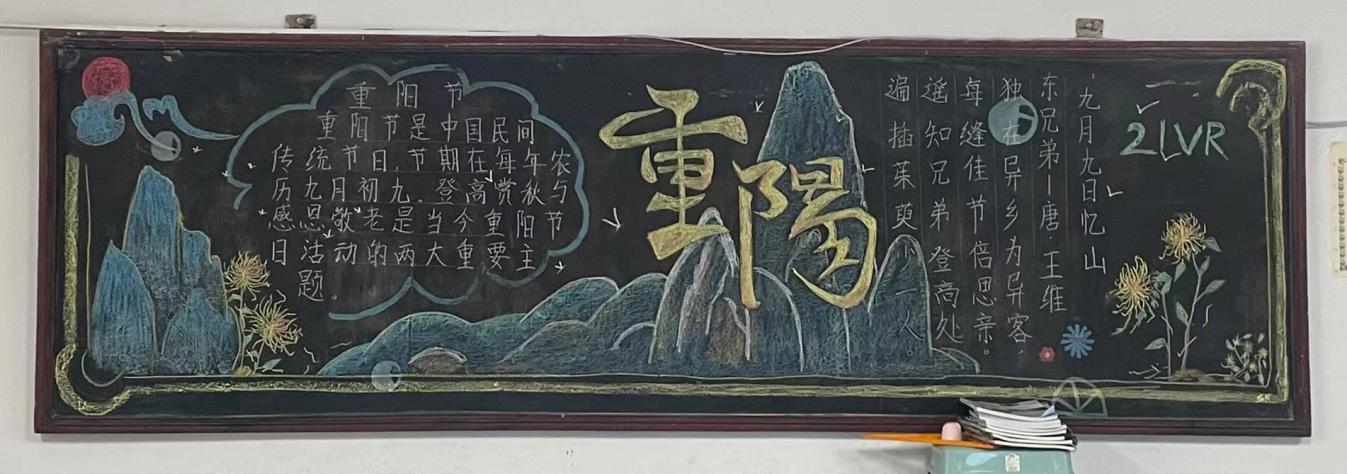 重阳节
重阳节是中国民间
传统节日，节期在每年农
历九月初九。登高赏秋与
感恩敬老是当今重阳节
日活动的两大重要主
题。
重陽
九月九日忆山
东兄弟-唐·王维
独在异乡为异客，
每缝佳节倍思亲。
遥知兄弟登高处
遍插茱萸少一人。
21VR